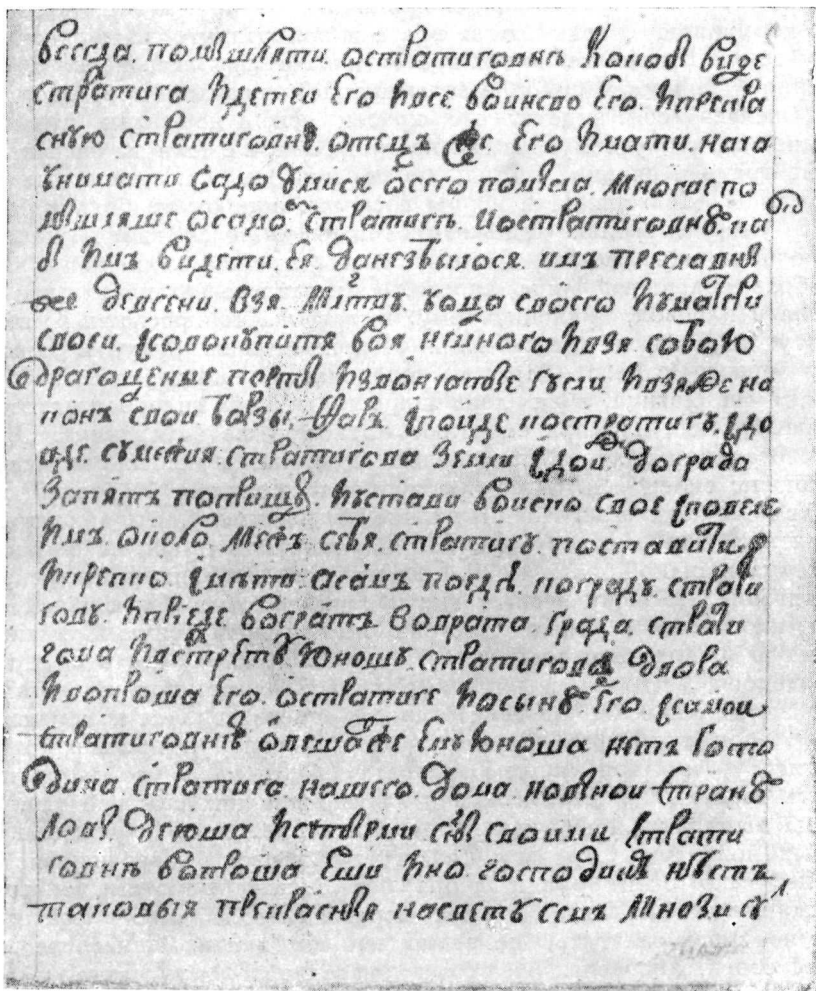 всегда. помышляти. остратиговнѣ како бы виде
стратига їдетеи его ївсе воинсво его. їпрекра
сную стратиговну. отецъ же его їмати. нача
унимати чадо уимися ѡсего помысла. многие по
мышляше осамо. стратиге. иостратиговну. на
бы їмъ видети. ея. данезбылося. имъ преславны
же девгени. взя. млтву. уоца своего їуматери
своеи. їсовокупитя воя немного їввзя собою
драгоценые порты їзвончатые гусли їввзяде на
конь свои борзы. фарь їпоиде кстратигу. їдо
иде. сумежия стратигова земли їдоид дограда
запять поприщь. їустави воиско свое їповеле
їмъ около себя. стражу. поставити
їкрепко їмѣти асамъ поеде. коградъ. страти
гову. їприеде вовратъ града. страти
гова їустрете юношу. стратигова двора
ївопроша его. остратиге їосынех его їсамои
стратиговнѣ ѡвещаше ему юноша несть госпо
дина. стратига нашего. дома новыной стране
ловы деюща їсчетырми сны своими страти
говнѣ вопроша еши їно господине нѣсть
таковыя прекрасныя насвету семъ мнози су